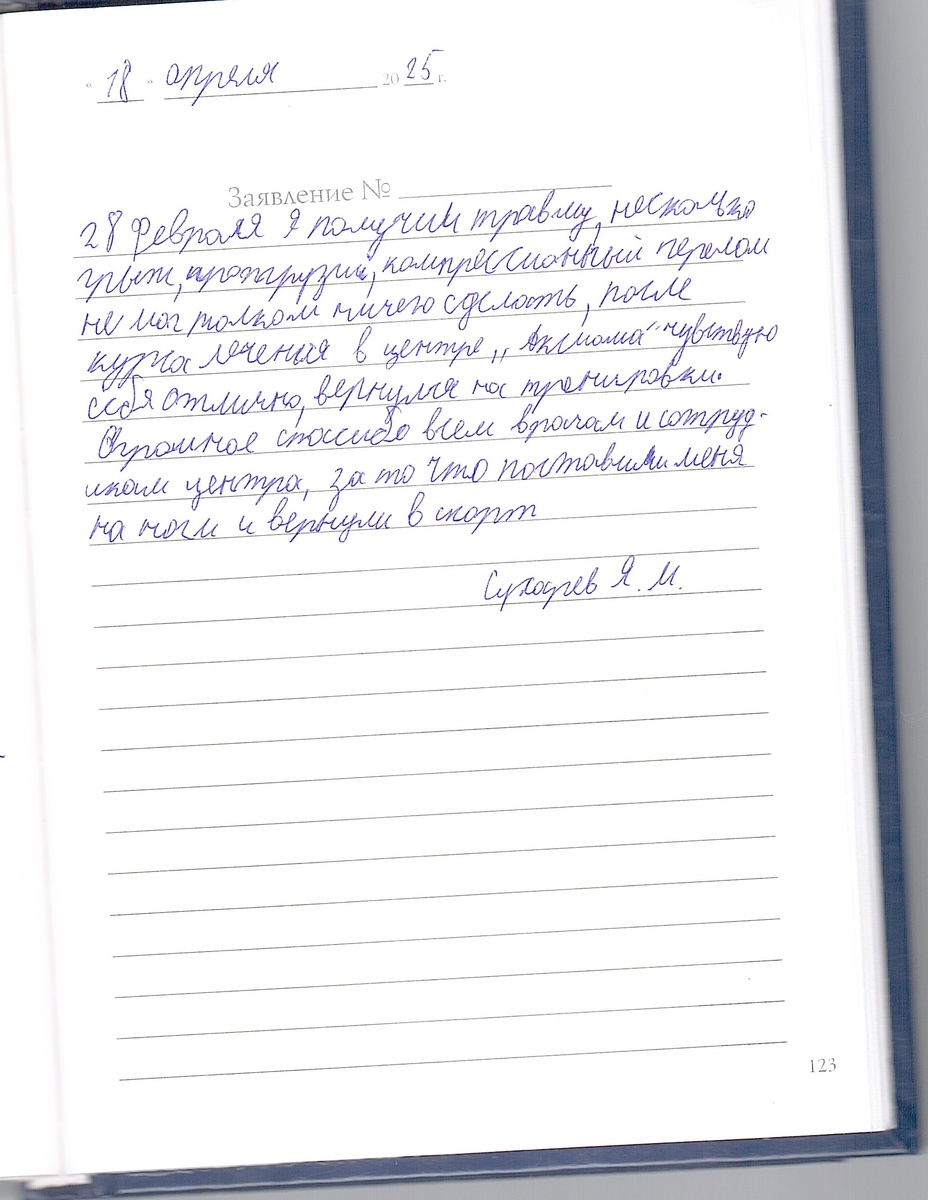 « 18 » апреля 2025 г.
Заявление №
28 февраля я получил травму, несколько
грыж, протрузий, компрессионный перелом
не мог толком ничего сделать, после
курса лечения в центре „Аксиома" чувствую
себя отлично, вернулся на тренировки.
Огромное спасибо всем врачам и сотруд-
икам центра, за то что поставили меня
на ноги и вернули в спорт
Сухарев Я. М.
123